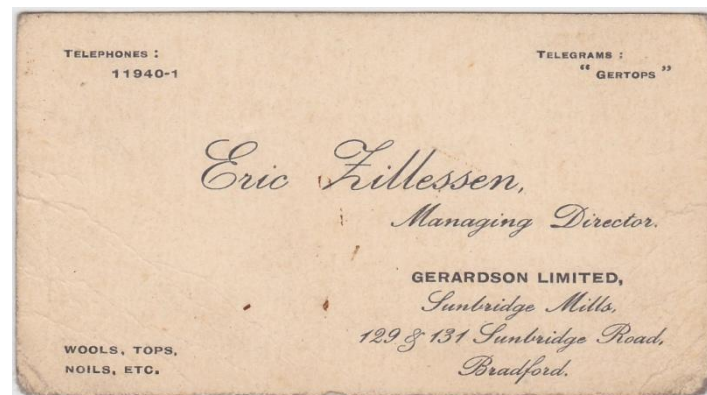 TELEPHONES :
11940-1
TELEGRAMS :
"GERTOPS"
Eric Zillessen,
Managing Director.
GERARDSON LIMITED,
Sunbridge Mills,
129 & 131 Sunbridge Road,
Bradford.
WOOLS, TOPS,
NOILS, ETC.